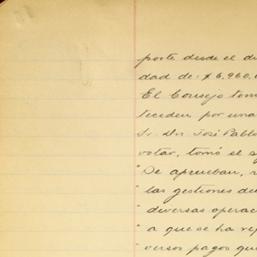 porte desde el di
dad de: $ 6,960,0
El Consejo tom
teceden por una
Sr. Dr. José Pablo
votar, tomó el s
"De aprueban, 
"las gestiones de
"diversas operac
"a que se ha re
"versos pagos qu